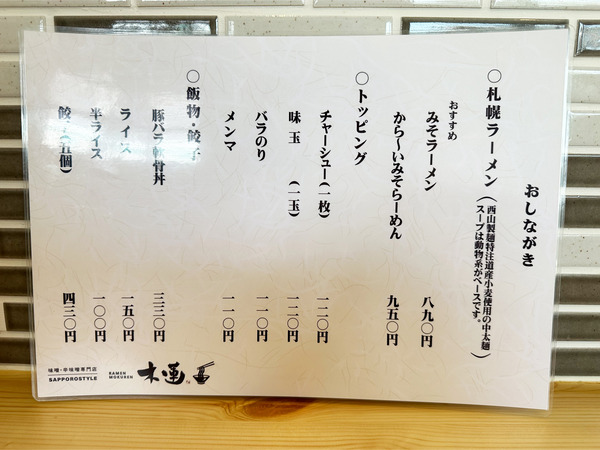 おしながき
○札幌ラーメン(西山製麺特注道産小麦使用の中太麺
スープは動物系がベースです。)
おすすめ
みそラーメン 八九〇円
から〜いみそらーめん 九五〇円
○トッピング
チャーシュー(一枚) 一二〇円
味玉 (一玉) 一二〇円
バラのり 一一〇円
メンマ 一一〇円
○飯物・餃子
豚バラ軟骨丼 三三〇円
ライス 一五〇円
半ライス 一〇〇円
餃子(五個) 四三〇円
味噌・辛味噌専門店
SAPPOROSTYLE
RAMEN
MOKUREN
木蓮